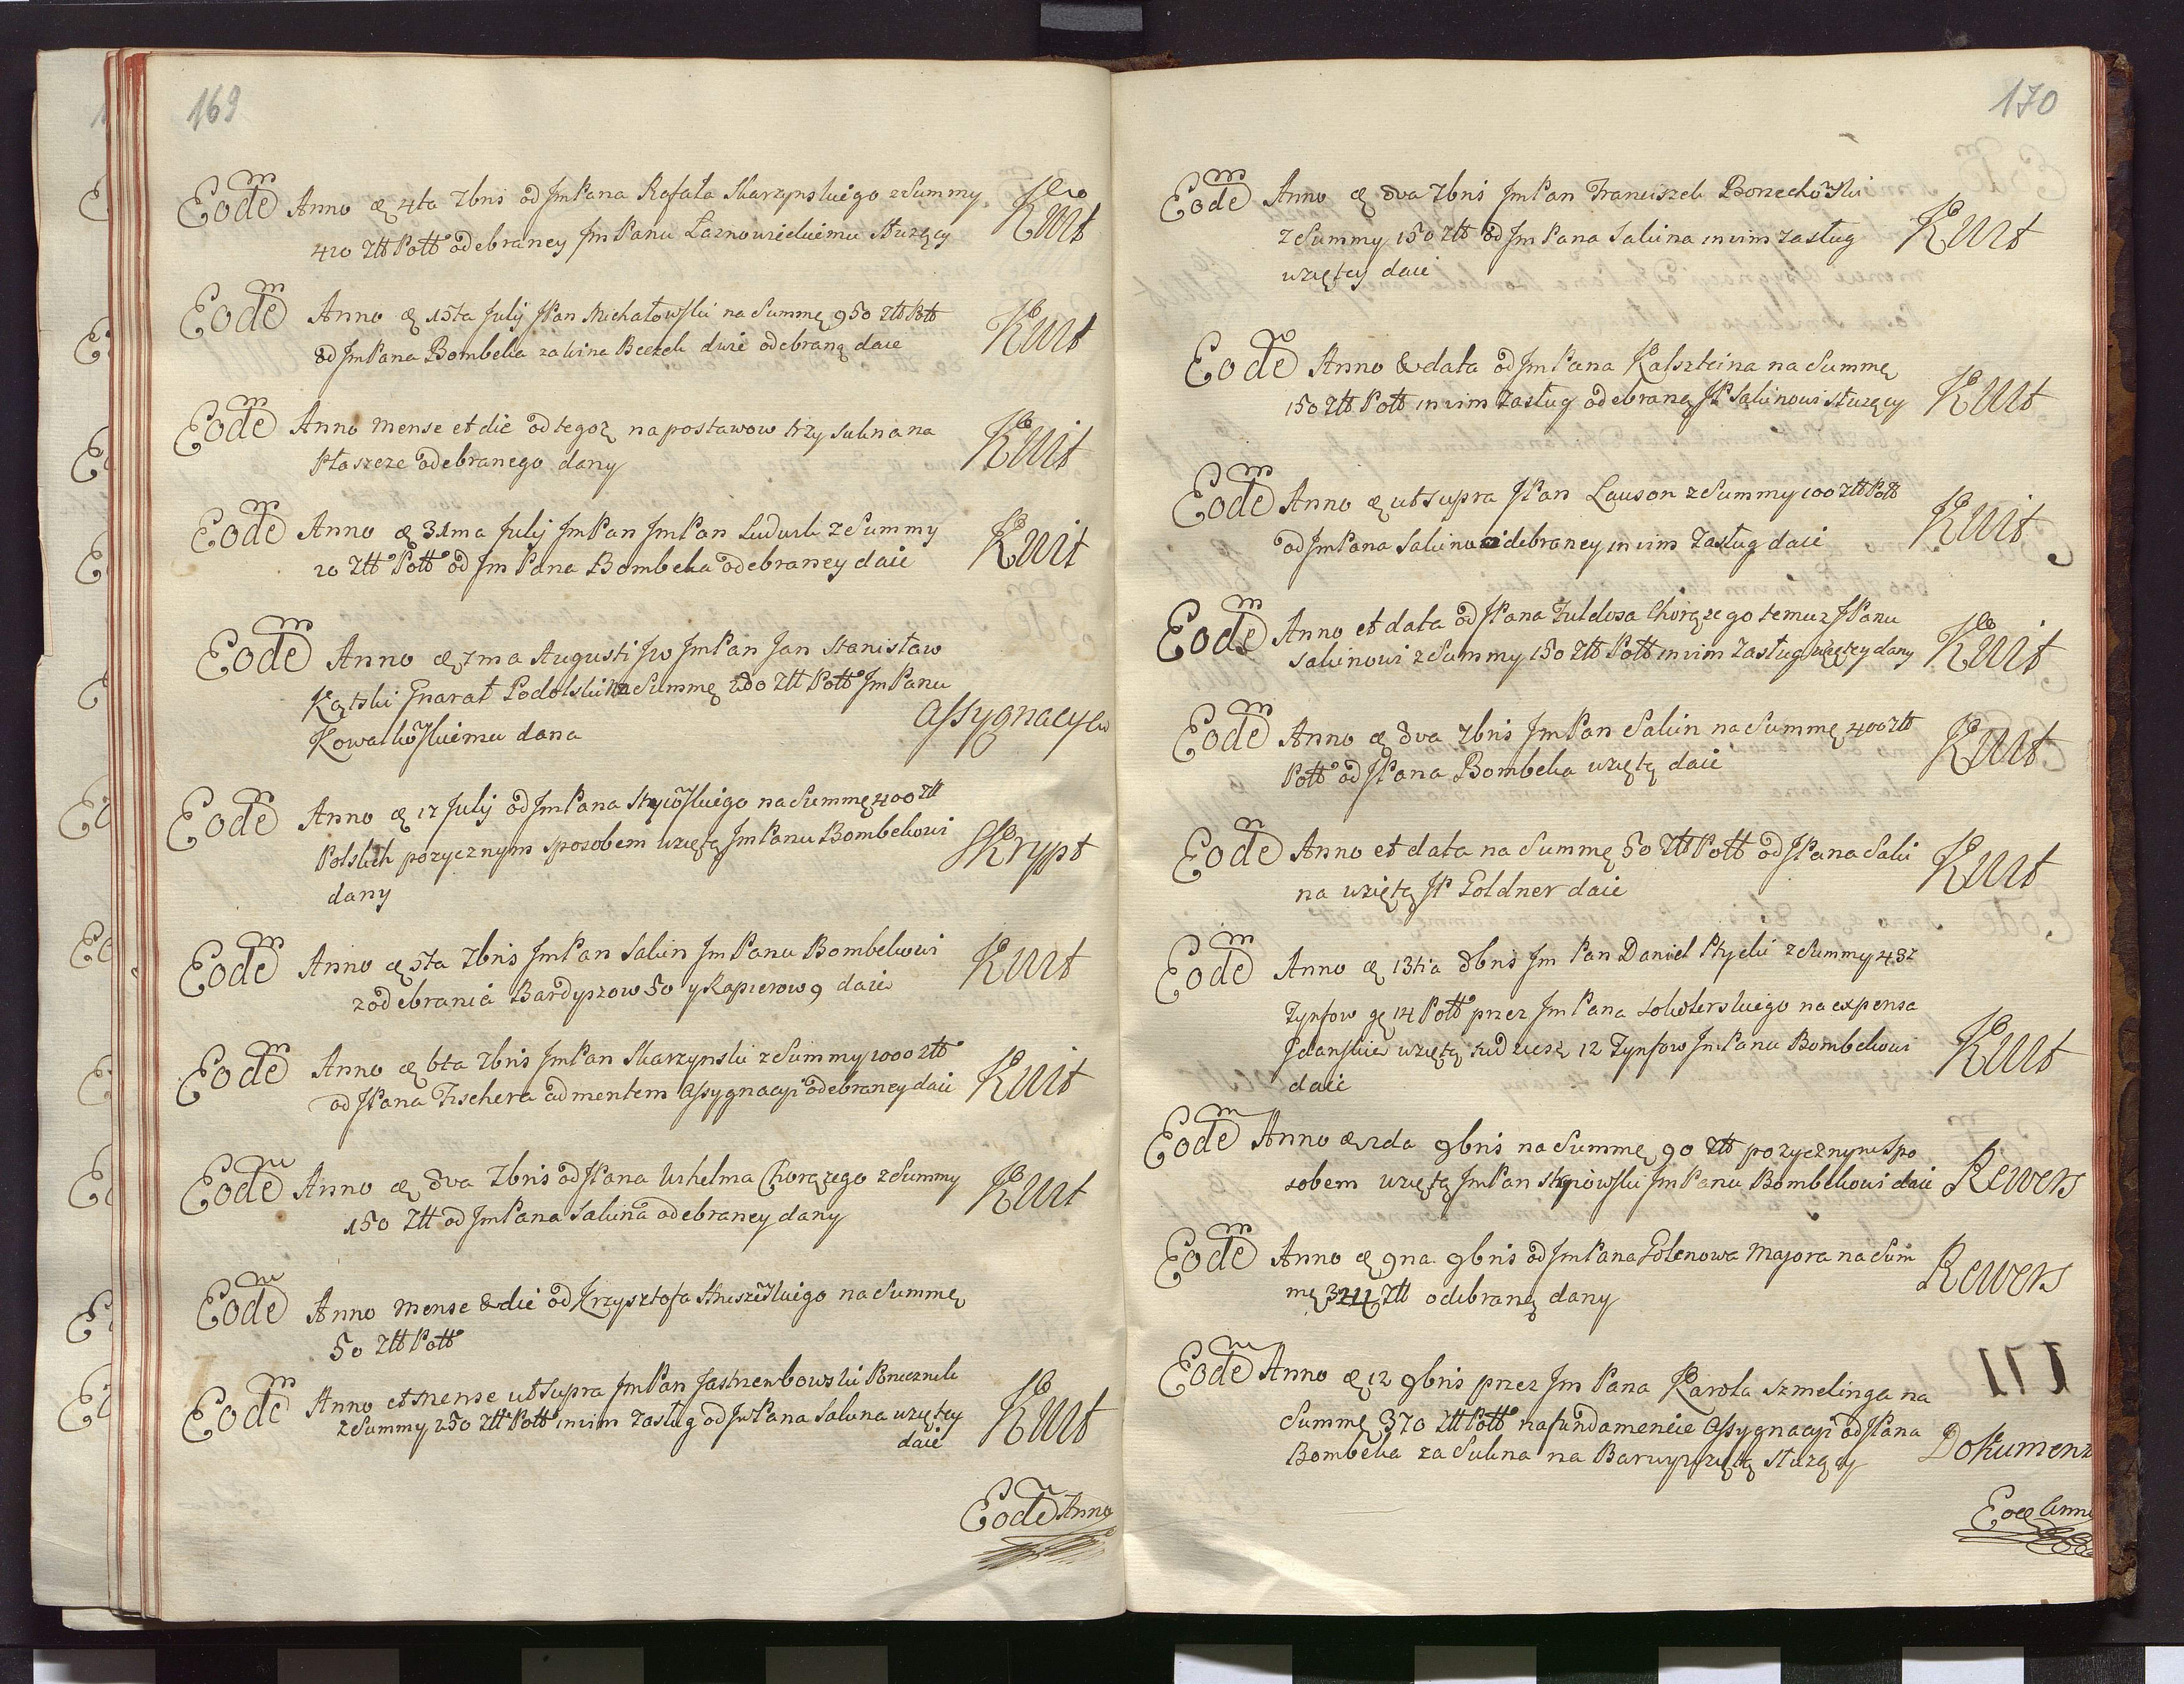 169
Eodem Anno & 4ta 7bris od JmPana Rafała Skarzynskiego z Summy
420 Złł Poll odebraney Jm Panu służący Kwit
Eodem Anno & 15ta Julij JPan Michałowski na Summę 950 Złł Poll
od JmPana Bombeka za wina Beczek dwie odebraną daie Kwit
Eodem Anno Mense et die od tegoz na postawow trzy sukna na
Płaszcze odebranego dany Kwit
Eodem Anno & 31ma Julij JmPan JmPan Ludwik z Summy
20 Złł Poll od Jm Pana Bombeka odebraney daie Kwit
Eodem Anno & 7ma Augusti Jw JmPan Jan Stanisław
Kątski Gnarał Podolski na Summę 200 Złł Poll JmPanu
Kowalkowskiemu dana Assygnacya
Eodem Anno & 12 Julij od JmPana na Summę 400 Złł
Polskich pozycznym sposobem wziętą JmPanu Bombekowi
dany Skrypt
Eodem Anno & 5ta 7bris JmPan Sakin Jm Panu Bombekowi
z odebrania Bardyszow 50 y Rapierow 9 daie Kwit
Eodem Anno & 6ta 7bris JmPan Skarzynski z Summy 1000 Złł
od JPana Fischera ad mentem Assygnacyi odebraney daie Kwit
Eodem Anno & 2va 7bris od JPana Wilhelma Chorązego z Summy
150 Złł od JmPana Sakina odebraney dany Kwit
Eodem Anno Mense & die od Krzysztofa na Summę
50 Złł Poll
Eodem Anno et Mense ut Supra JmPan Jastrzembowski Porucznik
z Summy 250 Złł Poll in vim Zasług od JmPana Sakina wziętey
daie Kwit
Eodem Anno
170
Eodem Anno & 2va 7bris JmPan Franciszek Borzechowski
z Summy 150 Złł od JmPana Sakina in vim zasług
wziętey daie Kwit
Eodem Anno & data od JmPana Kalszteina na Summę
150 Złł Poll in vim Zasług odebraną JP Sakinowi służący Kwit
Eodem Anno & ut supra JPan Lauson z Summy 100 Złł Poll
od JmPana Sakina odebraney in vim Zasług daie Kwit
Eodem Anno et data od JPana Chorązego temuz JPanu
Sakinowi z Summy 150 Złł Poll in vim Zasług wziętey dany Kwit
Eodem Anno & 2va 7bris JmPan Sakin na Summę 400 Złł
Poll od JPana Bombeka wziętą daie Kwit
Eodem Anno et data na Summę 50 Złł Poll od JPana Saki
na wziętą JP Goldner daie Kwit
Eodem Anno & 13tia 8bris Jm Pan Daniel z Summy 432
Tynfow przez Jm Pana na expensa
Gdanskie wziętą 12 Tynfow JmPanu Bombekowi
daie Kwit
Eodem Anno & 2da 9bris na Summę 90 Złł pozycznym Spo
sobem wziętą JmPan JmPanu Bombekowi daie Rewers
Eodem Anno & 9na 9bris od JmPana Golenowa Majora na Sum
mę Złł odebraną dany Rewers
171
Eodem Anno & 12 9bris przez Jm Pana Karola Szmelinga na
Summę 370 Złł Poll na fundamencie Assygnacyi od JPana
Bombeka za Sukna na Barwy wziętą służący Dokument
Eodem Anno